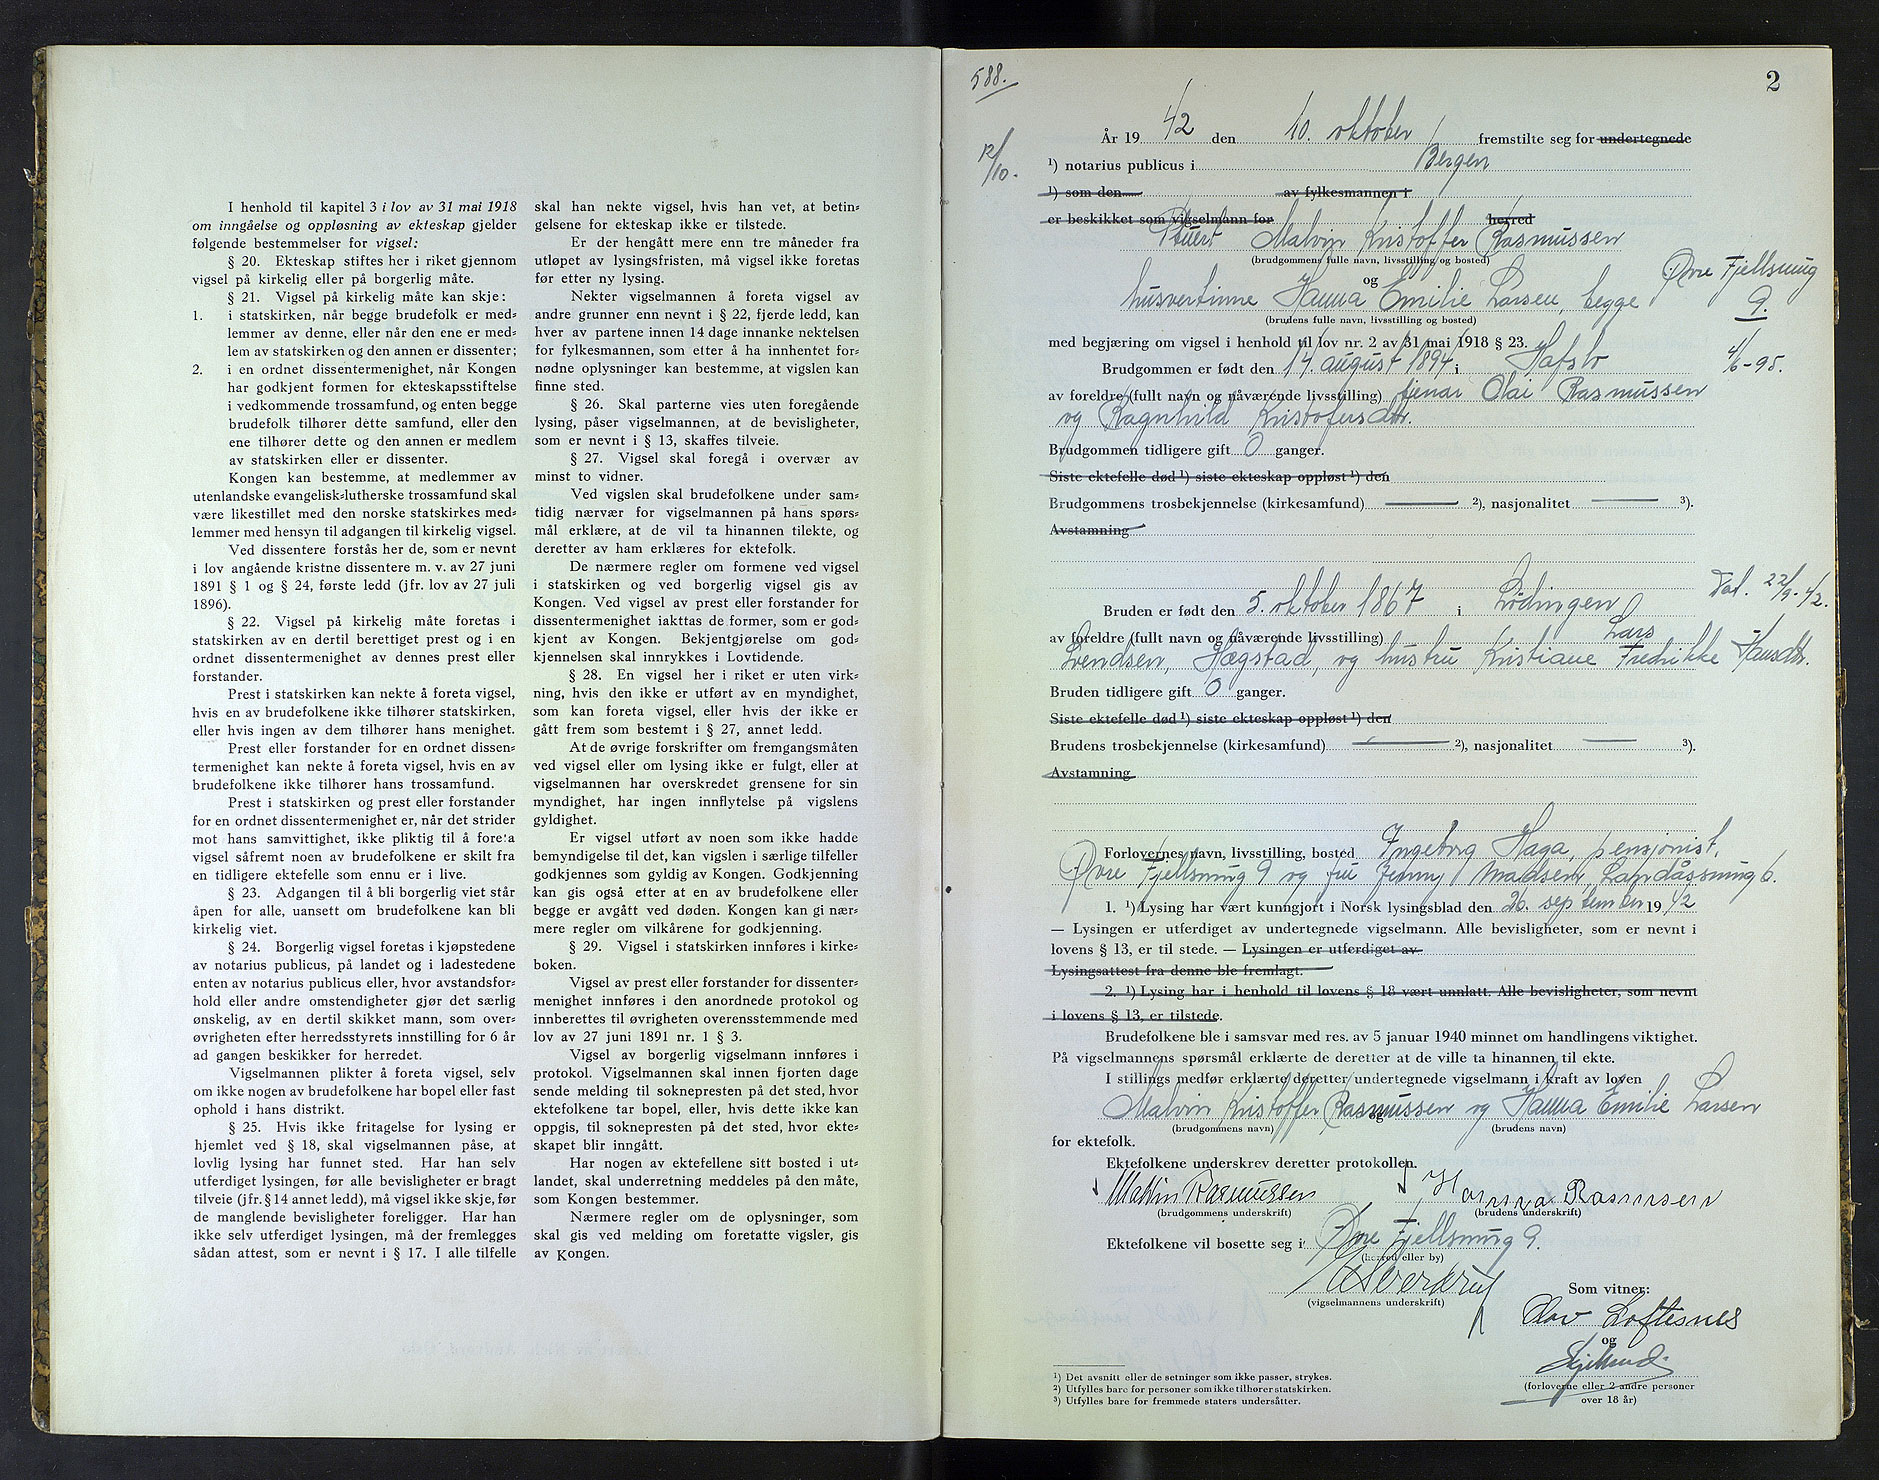 I henhold til kapitel 3 i lov av 31 mai 1918
om inngåelse og oppløsning av ekteskap gjelder
følgende bestemmelser for vigsel:
§ 20. Ekteskap stiftes her i riket gjennom
vigsel på kirkelig eller på borgerlig måte.
§ 21. Vigsel på kirkelig måte kan skje:
1. i statskirken, når begge brudefolk er med-
lemmer av denne, eller når den ene er med-
lem av statskirken og den annen er dissenter;
2. i en ordnet dissentermenighet, når Kongen
har godkjent formen for ekteskapsstiftelse
i vedkommende trossamfund, og enten begge
brudefolk tilhører dette samfund, eller den
ene tilhører dette og den annen er medlem
av statskirken eller er dissenter.
Kongen kan bestemme, at medlemmer av
utenlandske evangelisk-lutherske trossamfund skal
være likestillet med den norske statskirkes med-
lemmer med hensyn til adgangen til kirkelig vigsel.
Ved dissentere forstås her de, som er nevnt
i lov angående kristne dissentere m. v. av 27 juni
1891 § 1 og § 24, første ledd (jfr. lov av 27 juli
1896).
§ 22. Vigsel på kirkelig måte foretas i
statskirken av en dertil berettiget prest og i en
ordnet dissentermenighet av dennes prest eller
forstander.
Prest i statskirken kan nekte å foreta vigsel,
hvis en av brudefolkene ikke tilhører statskirken,
eller hvis ingen av dem tilhører hans menighet.
Prest eller forstander for en ordnet dissen-
termenighet kan nekte å foreta vigsel, hvis en av
brudefolkene ikke tilhører hans trossamfund.
Prest i statskirken og prest eller forstander
for en ordnet dissentermenighet er, når det strider
mot hans samvittighet, ikke pliktig til å foreta
vigsel såfremt noen av brudefolkene er skilt fra
en tidligere ektefelle som ennu er i live.
§ 23. Adgangen til å bli borgerlig viet står
åpen for alle, uansett om brudefolkene kan bli
kirkelig viet.
§ 24. Borgerlig vigsel foretas i kjøpstedene
av notarius publicus, på landet og i ladestedene
enten av notarius publicus eller, hvor avstandsfor-
hold eller andre omstendigheter gjør det særlig
ønskelig, av en dertil skikket mann, som over-
øvrigheten efter herredsstyrets innstilling for 6 år
ad gangen beskikker for herredet.
Vigselmannen plikter å foreta vigsel, selv
om ikke nogen av brudefolkene har bopel eller fast
ophold i hans distrikt.
§ 25. Hvis ikke fritagelse for lysing er
hjemlet ved § 18, skal vigselmannen påse, at
lovlig lysing har funnet sted. Har han selv
utferdiget lysingen, før alle bevisligheter er bragt
tilveie (jfr. § 14 annet ledd), må vigsel ikke skje, før
de manglende bevisligheter foreligger. Har han
ikke selv utferdiget lysingen, må der fremlegges
sådan attest, som er nevnt i § 17. I alle tilfelle
skal han nekte vigsel, hvis han vet, at betin-
gelsene for ekteskap ikke er tilstede.
Er der hengått mere enn tre måneder fra
utløpet av lysingsfristen, må vigsel ikke foretas
før etter ny lysing.
Nekter vigselmannen å foreta vigsel av
andre grunner enn nevnt i § 22, fjerde ledd, kan
hver av partene innen 14 dage innanke nektelsen
for fylkesmannen, som etter å ha innhentet for-
nødne oplysninger kan bestemme, at vigslen kan
finne sted.
§ 26. Skal parterne vies uten foregående
lysing, påser vigselmannen, at de bevisligheter,
som er nevnt i § 13, skaffes tilveie.
§ 27. Vigsel skal foregå i overvær av
minst to vidner.
Ved vigslen skal brudefolkene under sam-
tidig nærvær for vigselmannen på hans spørs-
mål erklære, at de vil ta hinannen tilekte, og
deretter av ham erklæres for ektefolk.
De nærmere regler om formene ved vigsel
i statskirken og ved borgerlig vigsel gis av
Kongen. Ved vigsel av prest eller forstander for
dissentermenighet iakttas de former, som er god-
kjent av Kongen. Bekjentgjørelse om god-
kjennelsen skal innrykkes i Lovtidende.
§ 28. En vigsel her i riket er uten virk-
ning, hvis den ikke er utført av en myndighet,
som kan foreta vigsel, eller hvis der ikke er
gått frem som bestemt i § 27, annet ledd.
At de øvrige forskrifter om fremgangsmåten
ved vigsel eller om lysing ikke er fulgt, eller at
vigselmannen har overskredet grensene for sin
myndighet, har ingen innflytelse på vigslens
gyldighet.
Er vigsel utført av noen som ikke hadde
bemyndigelse til det, kan vigslen i særlige tilfeller
godkjennes som gyldig av Kongen. Godkjenning
kan gis også etter at en av brudefolkene eller
begge er avgått ved døden. Kongen kan gi nær-
mere regler om vilkårene for godkjenning.
§ 29. Vigsel i statskirken innføres i kirke-
boken.
Vigsel av prest eller forstander for dissenter-
menighet innføres i den anordnede protokol og
innberettes til øvrigheten overensstemmende med
lov av 27 juni 1891 nr. 1 § 3.
Vigsel av borgerlig vigselmann innføres i
protokol. Vigselmannen skal innen fjorten dage
sende melding til soknepresten på det sted, hvor
ektefolkene tar bopel, eller, hvis dette ikke kan
oppgis, til soknepresten på det sted, hvor ekte-
skapet blir inngått.
Har nogen av ektefellene sitt bosted i ut-
landet, skal underretning meddeles på den måte,
som Kongen bestemmer.
Nærmere regler om de oplysninger, som
skal gis ved melding om foretatte vigsler, gis
av Kongen.
588.
2
12/10.
År 19 42 den 10. oktober fremstilte seg for undertegnede
¹) notarius publicus i Bergen
¹) som den av fylkesmannen i
er beskikket som vigselmann for herred
Malvin Kristoffer Rasmussen
(brudgommens fulle navn, livsstilling og bosted)
og
husvertinne Hanna Emilie Larsen, begge Øvre Fjellsmug
9.
(brudens fulle navn, livsstilling og bosted)
med begjæring om vigsel i henhold til lov nr. 2 av 31 mai 1918 § 23.
Brudgommen er født den 14. august 1894 i Hafslo 4/6-95.
av foreldre (fullt navn og nåværende livsstilling) tjenar Olai Rasmussen
og Ragnhild Kristofersdtr.
Brudgommen tidligere gift 0 ganger.
Siste ektefelle død ¹) siste ekteskap oppløst ¹) den
Brudgommens trosbekjennelse (kirkesamfund) ²), nasjonalitet ³).
Avstamning
Bruden er født den 5. oktober 1867 i Lödingen Dat. 22/9-42.
av foreldre (fullt navn og nåværende livsstilling) Lars
Svendsen, Hægstad, og hustru Kristiane Fredrikke Hansdtr.
Bruden tidligere gift 0 ganger.
Siste ektefelle død ¹) siste ekteskap oppløst ¹) den
Brudens trosbekjennelse (kirkesamfund) ²), nasjonalitet ³).
Avstamning
Forlovernes navn, livsstilling, bosted Ingeborg Haga, pensjonist,
Øvre Fjellsmug 9 og fru Jenny Madsen, Landåssmug 6.
1. ¹) Lysing har vært kunngjort i Norsk lysingsblad den 26. september 19 42
— Lysingen er utferdiget av undertegnede vigselmann. Alle bevisligheter, som er nevnt i
lovens § 13, er til stede. — Lysingen er utferdiget av
Lysingsattest fra denne ble fremlagt.
2. ¹) Lysing har i henhold til lovens § 18 vært unnlatt. Alle bevisligheter, som nevnt
i lovens § 13, er tilstede.
Brudefolkene ble i samsvar med res. av 5 januar 1940 minnet om handlingens viktighet.
På vigselmannens spørsmål erklærte de deretter at de ville ta hinannen til ekte.
I stillings medfør erklærte deretter undertegnede vigselmann i kraft av loven
Malvin Kristoffer Rasmussen og Hanna Emilie Larsen
(brudgommens navn) (brudens navn)
for ektefolk.
Ektefolkene underskrev deretter protokollen.
Malvin Rasmussen Hanna Rasmusen
(brudgommens underskrift) (brudens underskrift)
Ektefolkene vil bosette seg i Øvre Fjellsmug 9.
(herred eller by)
Sverdrup
(vigselmannens underskrift)
Som vitner:
Olav Loftesnes
og
(forloverne eller 2 andre personer
over 18 år)
¹) Det avsnitt eller de setninger som ikke passer, strykes.
²) Utfylles bare for personer som ikke tilhører statskirken.
³) Utfylles bare for fremmede staters undersåtter.